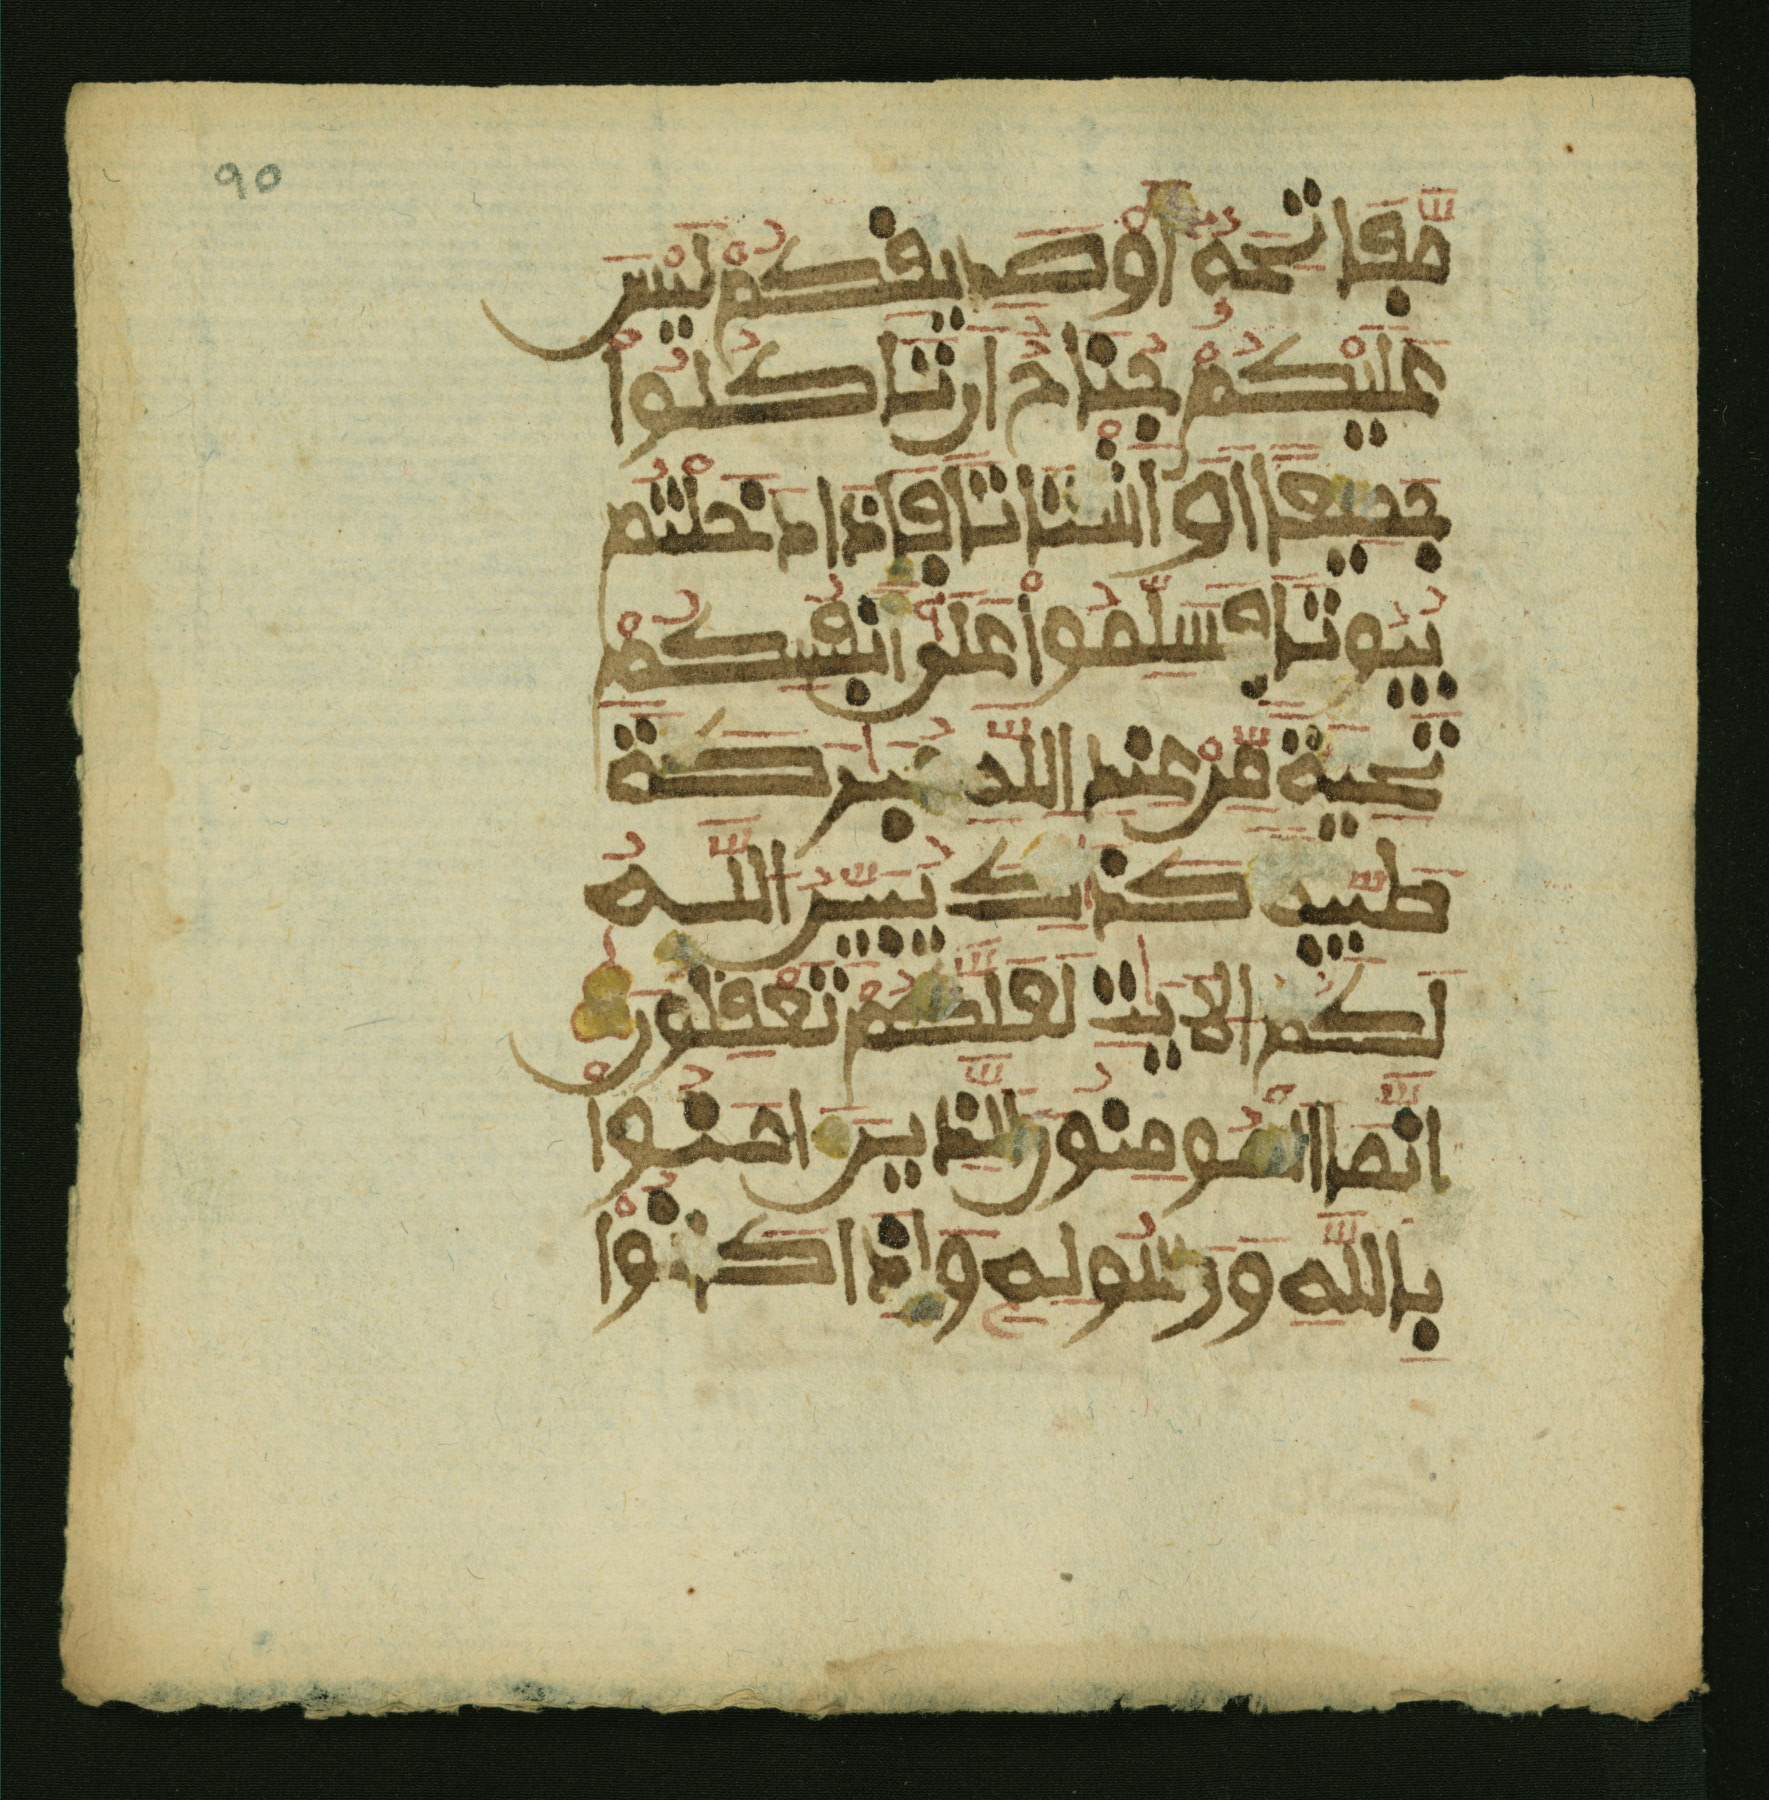 90
مَّفَاتِحَهُ أَوْ صَدِيقِكُمْ لَيْسَ
عَلَيْكُمْ جُنَاحٌ اَن تَاكُلُواْ
جَمِيعًا اَوَ اَشْتَاتًا فَإِذَا دَخَلْتُم
بُيُوتًا فَسَلِّمُواْ عَلَىٰ أَنفُسِكُمْ
تَحِيَّةً مِّنْ عِندِ اللَّهِ مُبَٰرَكَةً
طَيِّبَةً كَذَٰلِكَ يُبَيِّنُ اللَّهُ
لَكُمُ الَايَٰتِ لَعَلَّكُمْ تَعْقِلُونَ
إِنَّمَا الْمُومِنُونَ الَّذِينَ ءَامَنُواْ
بِاللَّهِ وَرَسُولِهِ وَإِذَا كَانُواْ